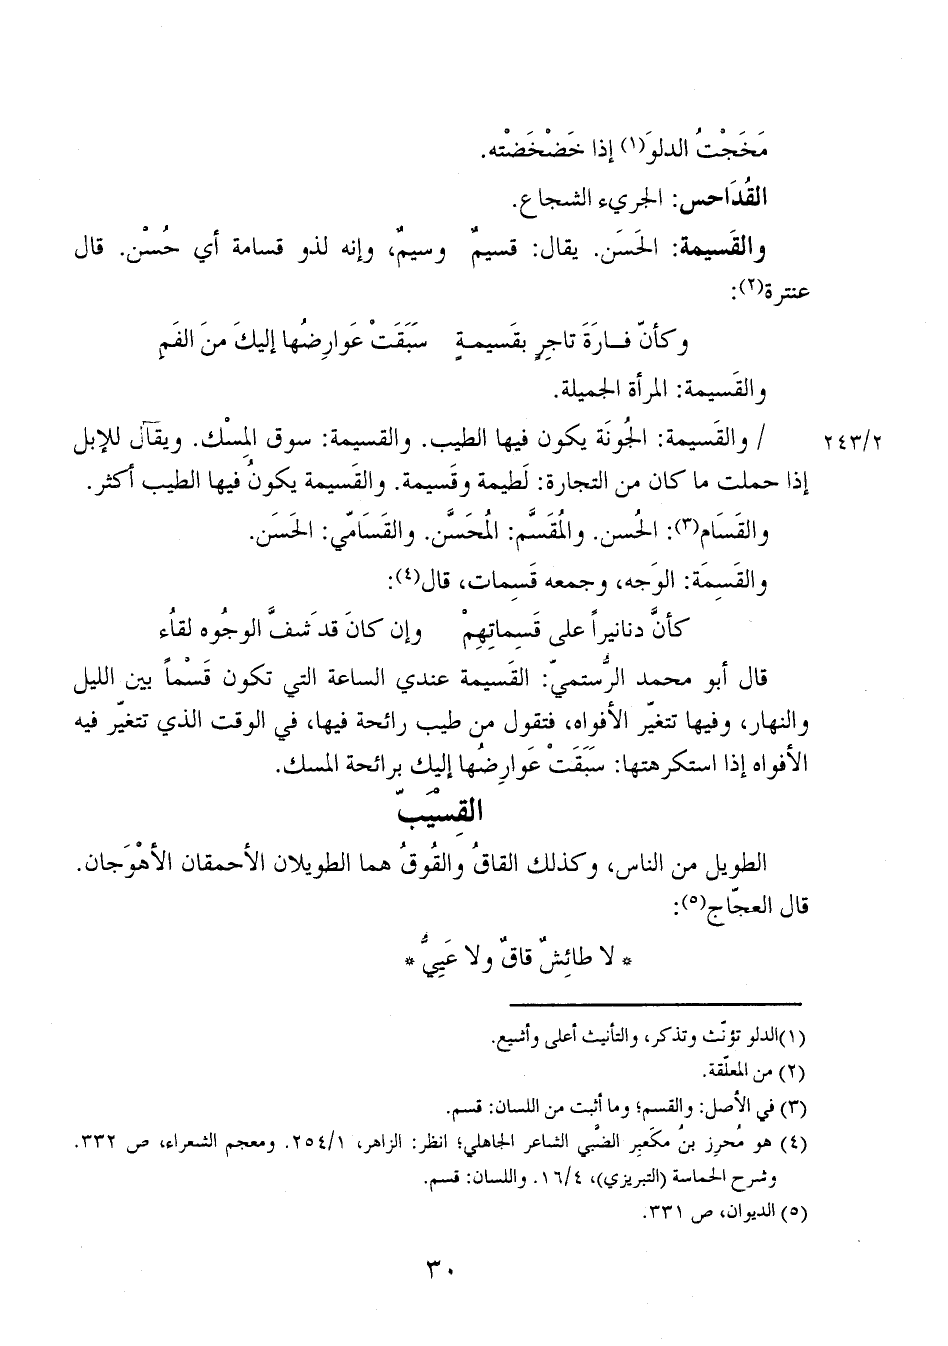 مَخَجْتُ الدلوَ(١) إذا خَضْخَضْته.
القُدَاحس: الجريء الشجاع.
والقَسيمة: الحَسَن. يقال: قسيمٌ وسيمٌ، وإنه لذو قسامة أي حُسْن. قال
عنترة(٢):
وكأنّ فــارَةَ تاجِرٍ بقَسيمـةٍ سَبَقَتْ عَوارِضُها إليكَ منَ الفَمِ
والقَسيمة: المرأة الجميلة.
٢٤٣/٢ / والقَسيمة: الجُونَة يكون فيها الطيب. والقسيمة: سوق المِسْك. ويقال للإبل
إذا حملت ما كان من التجارة: لَطيمة وقَسيمة. والقَسيمة يكونُ فيها الطيب أكثر.
والقَسَام(٣): الحُسن. والمُقَسَّم: المُحَسَّن. والقَسَامّي: الحَسَن.
والقَسِمَة: الوَجه، وجمعه قَسِمات، قال(٤):
كأنَّ دنانيراً على قَسِماتِهِمْ وإن كانَ قد شَفَّ الوجُوه لقاُء
قال أبو محمد الرُّستميّ: القَسيمة عندي الساعة التي تكون قَسْماً بين الليل
والنهار، وفيها تتغيّر الأفواه، فتقول من طيب رائحة فيها، في الوقت الذي تتغيّر فيه
الأفواه إذا استكرهتها: سَبَقَتْ عَوارِضُها إليك برائحة المسك.
القِسْيَبّ
الطويل من الناس، وكذلك القاقُ والقُوقُ هما الطويلان الأحمقان الأهْوَجان.
قال العجّاج(٥):
* لا طائِشٌ قاقٌ ولا عَيِيُّ *
(١)الدلو تؤنّث وتذكر، والتأنيث أعلى وأشيع.
(٢) من المعلّقة.
(٣) في الأصل: والقسم؛ وما أثبت من اللسان: قسم.
(٤) هو مُحرِز بنُ مكَعبِر الضّبي الشاعر الجاهلي؛ انظر: الزاهر، ٢٥٤/١. ومعجم الشعراء، ص ٣٣٢.
وشرح الحماسة (التبريزي)، ١٦/٤. واللسان: قسم.
(٥) الديوان، ص ٣٣١.
٣٠